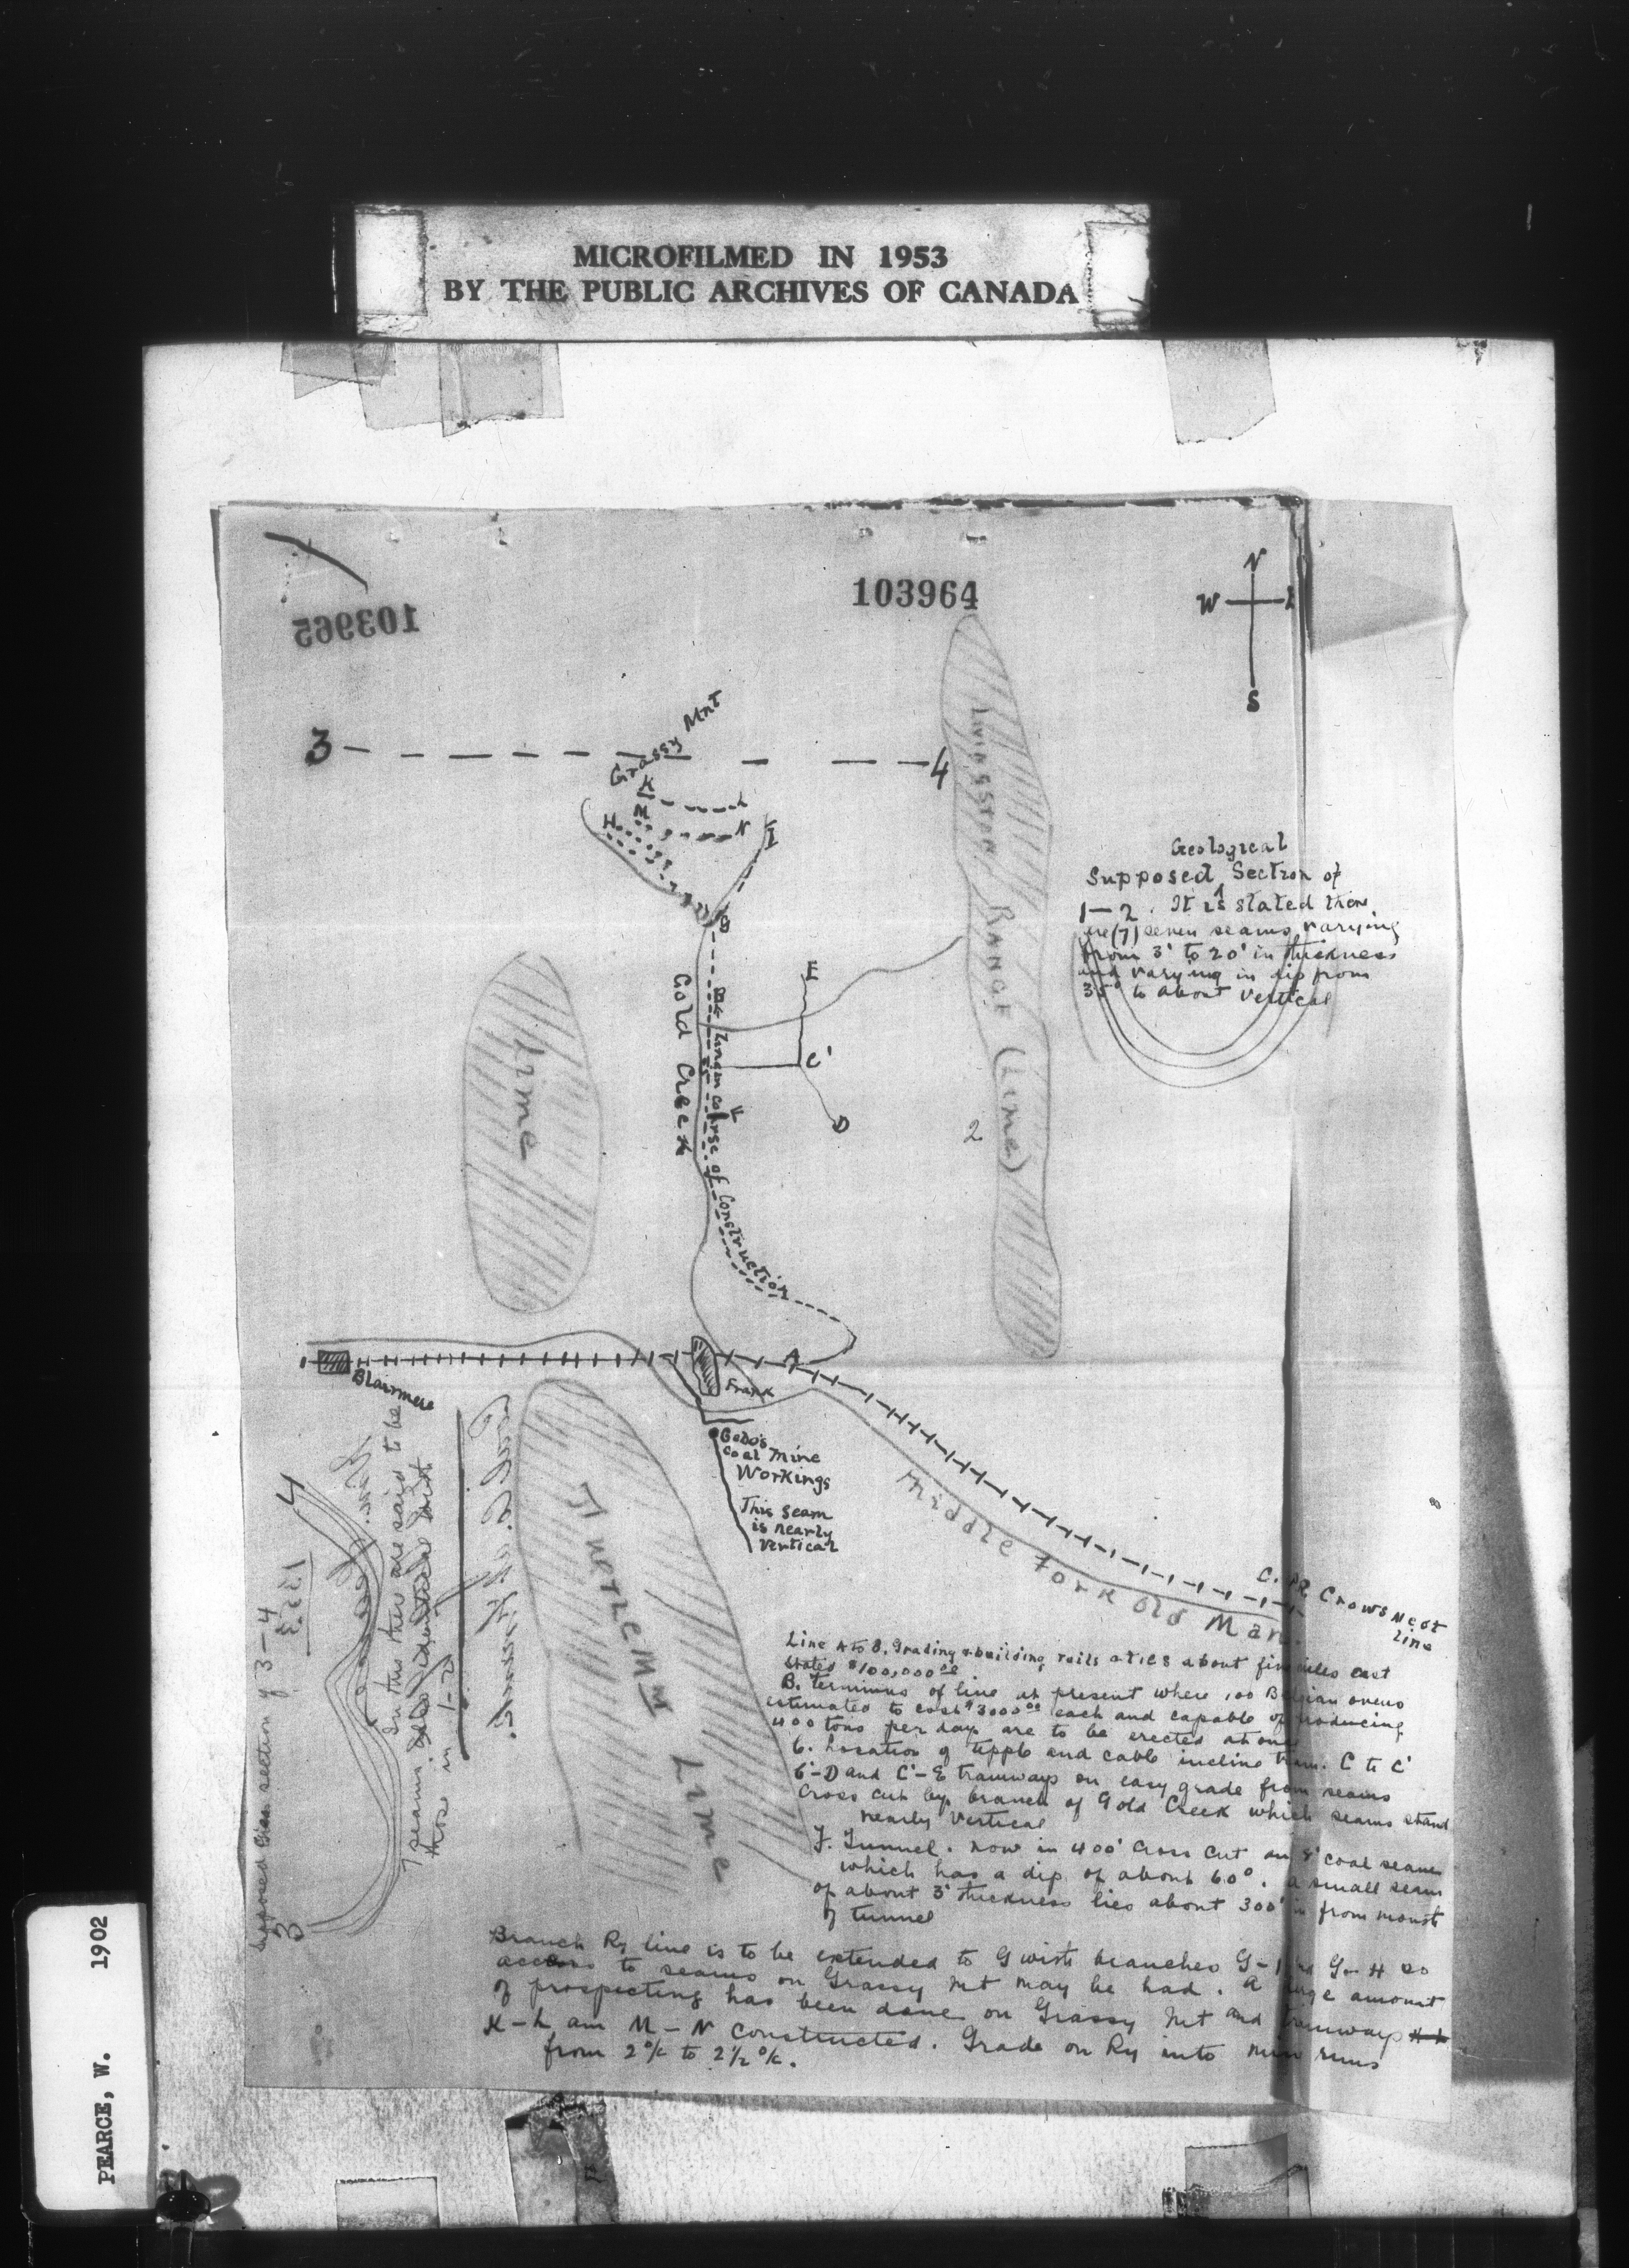 MICROFILMED IN 1953
BY THE PUBLIC ARCHIVES OF CANADA
103964
103965
N
W
S
3
4
Grassy Mnt
K
L
M
N
H
I
G
Livingston Range (Lime)
Geological
Supposed Section of
1—2. It is stated there
are (7) seven seams varying
from 3' to 20' in thickness
and varying in dip from
35° to about vertical
E
C'
D
F
2
Gold Creek
course of Construction
Lime
A
Blairmore
Frank
Gebo's
Coal Mine
Workings
This seam
is nearly
vertical
Turtle Mn Lime
Middle Fork Old Man
C.P.R Crows Nest
Line
4
3
section of 3—4
In this there are said to be
7 seams
those in 1-2
Line A to B. Grading & building, rails & ties about five miles cost
stated $100,000.00
B. terminus of line at present where 100 Belgian ovens
estimated to cost $3000.00 each and capable of producing
400 tons per day are to be erected at once
C. Location of tipple and cable incline tram. C to C'
C'-D and C'-E tramways on easy grade from seams
cross cut by branch of Gold Creek which seams stand
nearly vertical
F. Tunnel. now in 400' cross cut an 8' coal seam
which has a dip of about 60°. a small seam
of about 3' thickness lies about 300' in from mouth
of tunnel
Branch Ry line is to be extended to G with branches G-I and G-H so
access to seams on Grassy Mt may be had. A large amount
of prospecting has been done on Grassy Mt and tramways
K-L and M-N constructed. Grade on Ry into mine runs
from 2% to 2½%.
PEARCE, W. 1902